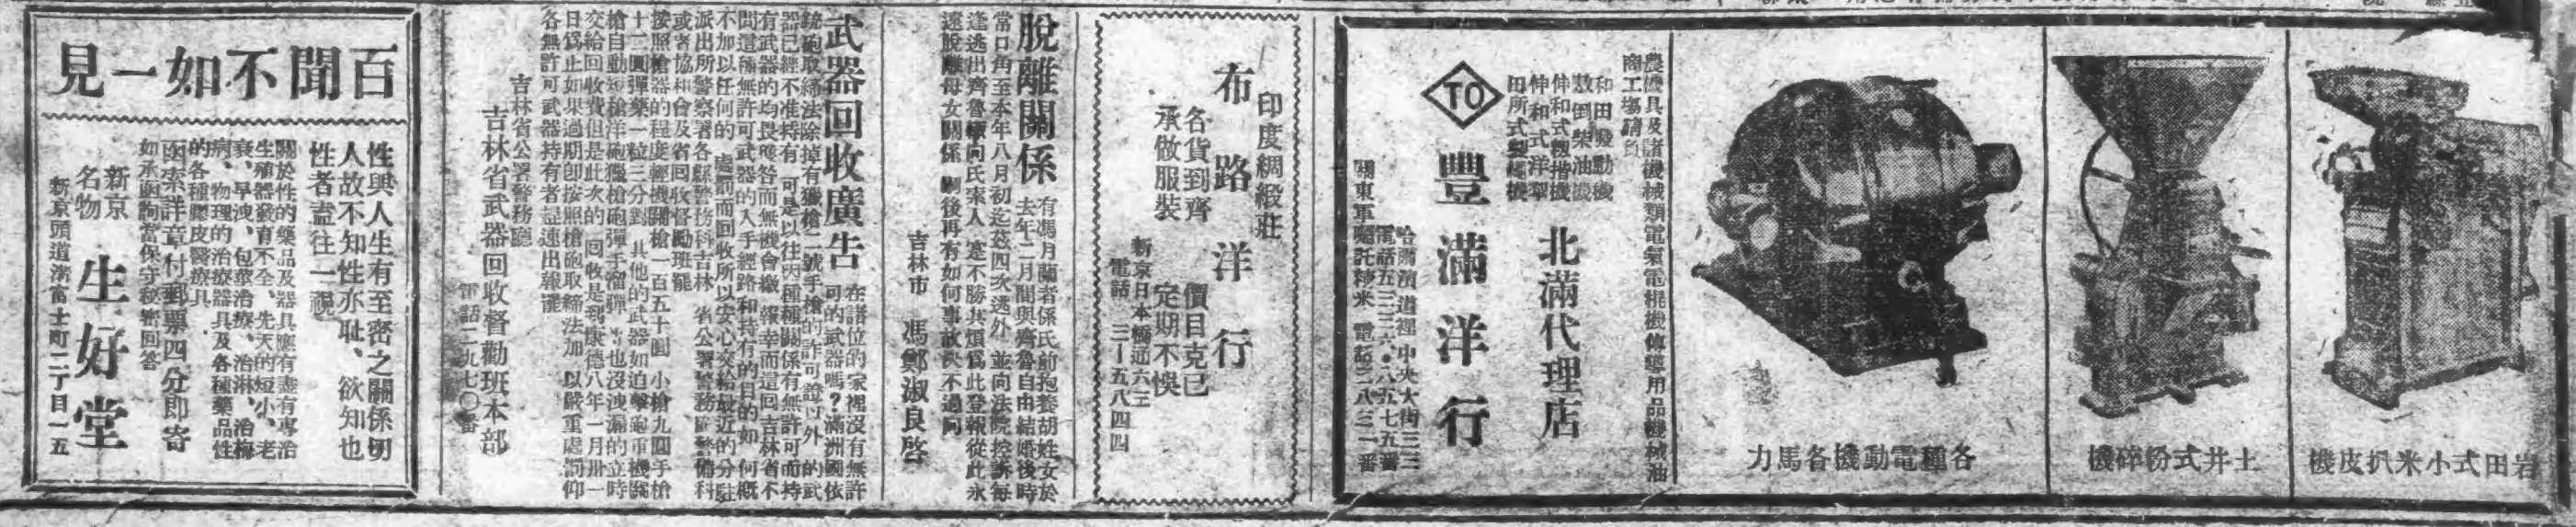 岩田式小米扒皮機
土井式粉碎機
各種電動機各馬力
農機具及諸機械類電氣電提機傳導用品機械油
商工場請負
和田發動機
敷倒柴油機
伸和式製
伸和式洋犂
田所式製繩機
北滿代理店
TO
豐滿洋行
哈爾濱道裡中央大街三三
電話五三三六・八五七五番
關東軍囑託精米 電話二八三一番
印度綢緞莊
布路洋行
名貨到齊 價目克己
承做服裝 定期不悞
新京日本橋通六三
電話 三―五八四四
脫離關係
有馮月蘭者係氏前抱養胡姓女於
去年二月間與齊魯自由結婚後時
常口角至本年八月初迄茲四次逃外 並向法院控訴每
逢逃出齊魯輒向氏索人 寔不勝其煩爲此登報從此永
遠脫離母女關係 嗣後再有如何事故決不過問
吉林市 馮鄭淑良啓
武器回收廣告
在諸位的家裡沒有無許
可的武器嗎?滿洲國依
銃砲取締法除掉有獵槍二號手槍的許可證以外 的武
器已經不准持有 可是以往因種種關係有無許可而持
有武器的均畏罪咎而無機會繳 報幸而這回吉林省不
問這種無許可武器的入手經路和持有的目的如 何概
不加以任何的 處罰而回收所以安心交給最近的分駐
派出所警察署各縣警務科吉林 省公署警務廳警備科
或者協和會及省回收督勵班罷
按照槍器的程度輕機關槍一百五十圓 小槍九圓手槍
十二圓彈藥一粒三分對 其他的武器如迫擊砲重機關
槍自動短槍洋砲獵槍砲彈手溜彈 等也沒洩漏的立時
交給回收費但是此次的 回收是到康德八年一月卅一
日爲止如果過期卽按照槍砲取締法加 以嚴重處罰仰
各無許可武器持有者起速出報罷
吉林省公署警務廳
吉林省武器回收督勸班本部
電話二九七〇番
百聞不如一見
性與人生有至密之關係切
人故不知性亦耻、欲知也
性者盍往一覗
關於性的藥品及器具應有盡有專治
生殖器發育不全、先天的短小、老
衰、早洩、包莖治療、治淋、治梅
病、物理的治療器具及各種藥品性
的各種膠皮醫療具
函索詳章付郵票四分即寄
如承函詢當保守秘密回答
新京名物 生好堂
新京頭道溝富士町二丁目一五